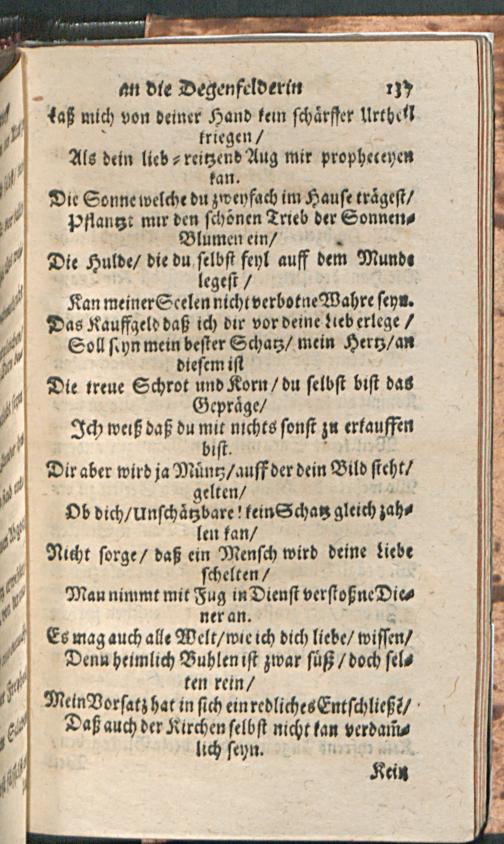 an die Degenfelderin 137
Laß mich von deiner Hand kein schärffer Urtheil
kriegen/
Als dein lieb⸗reitzend Aug mir propheceyen
kan.
Die Sonne welche du zweyfach im Hause trägest/
Pflantzt mir den schönen Trieb der Sonnen⸗
Blumen ein/
Die Hulde/ die du selbst feyl auff dem Munde
legest/
Kan meiner Seelen nicht verbotne Wahre seyn.
Das Kauffgeld daß ich dir vor deine Lieb erlege/
Soll seyn mein bester Schatz/ mein Hertz/ an
diesem ist
Die treue Schrot und Korn/ du selbst bist das
Gepräge/
Ich weiß daß du mit nichts sonst zu erkauffen
bist.
Dir aber wird ja Müntz/ auff der dein Bild steht/
gelten/
Ob dich/ Unschätzbare! kein Schatz gleich zah⸗
len kan/
Nicht sorge/ daß ein Mensch wird deine Liebe
schelten/
Man nimmt mit Fug in Dienst verstoßne Die⸗
ner an.
Es mag auch alle Welt/ wie ich dich liebe/ wissen/
Denn heimlich Buhlen ist zwar süß/ doch sel⸗
ten rein/
Mein Vorsatz hat in sich ein redliches Entschließẽ/
Daß auch der Kirchen selbst nicht kan verdam̃⸗
lich seyn.
Kein